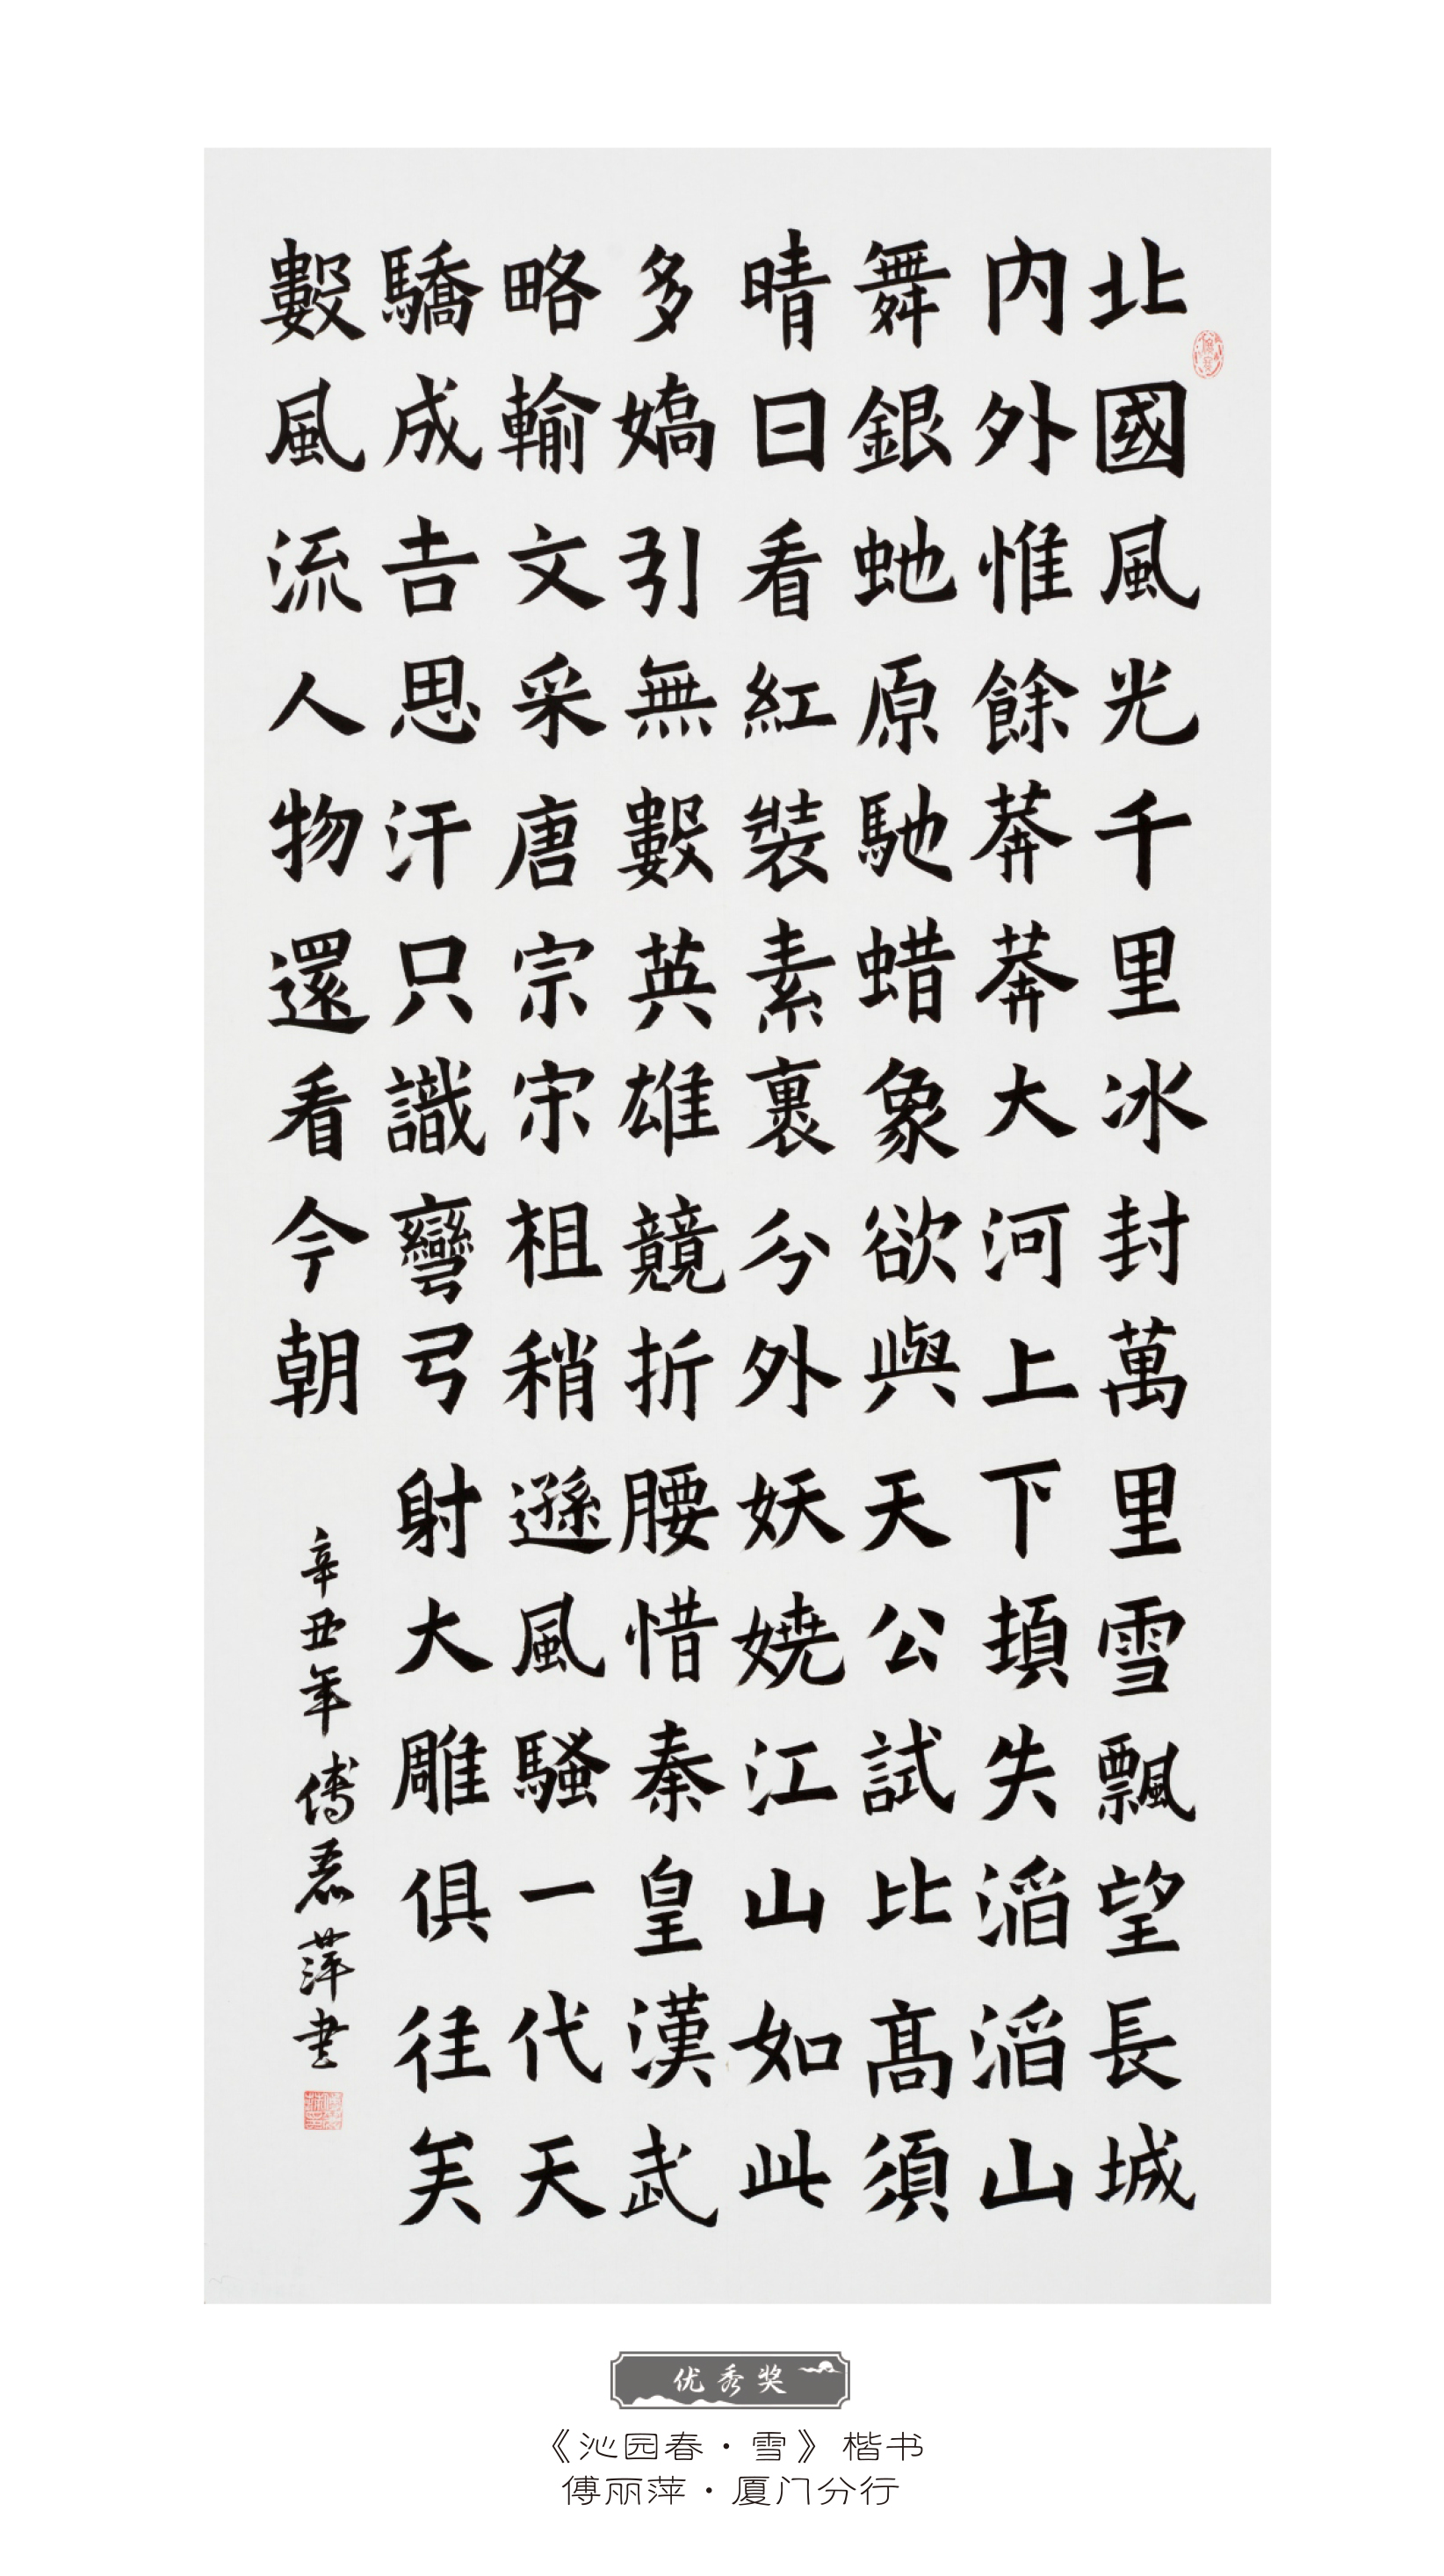 北國風光千里冰封萬里雪飄望長城
内外惟餘莽莽大河上下頓失滔滔山
舞銀虵原馳蜡象欲與天公試比髙須
晴日看紅裝素裹分外妖嬈江山如此
多嬌引無數英雄競折腰惜秦皇漢武
略輸文采唐宗宋祖稍遜風騷一代天
驕成吉思汗只識彎弓射大雕俱往矣
數風流人物還看今朝
辛丑年傅麗萍書
优秀奖
《沁园春·雪》楷书
傅丽萍·厦门分行